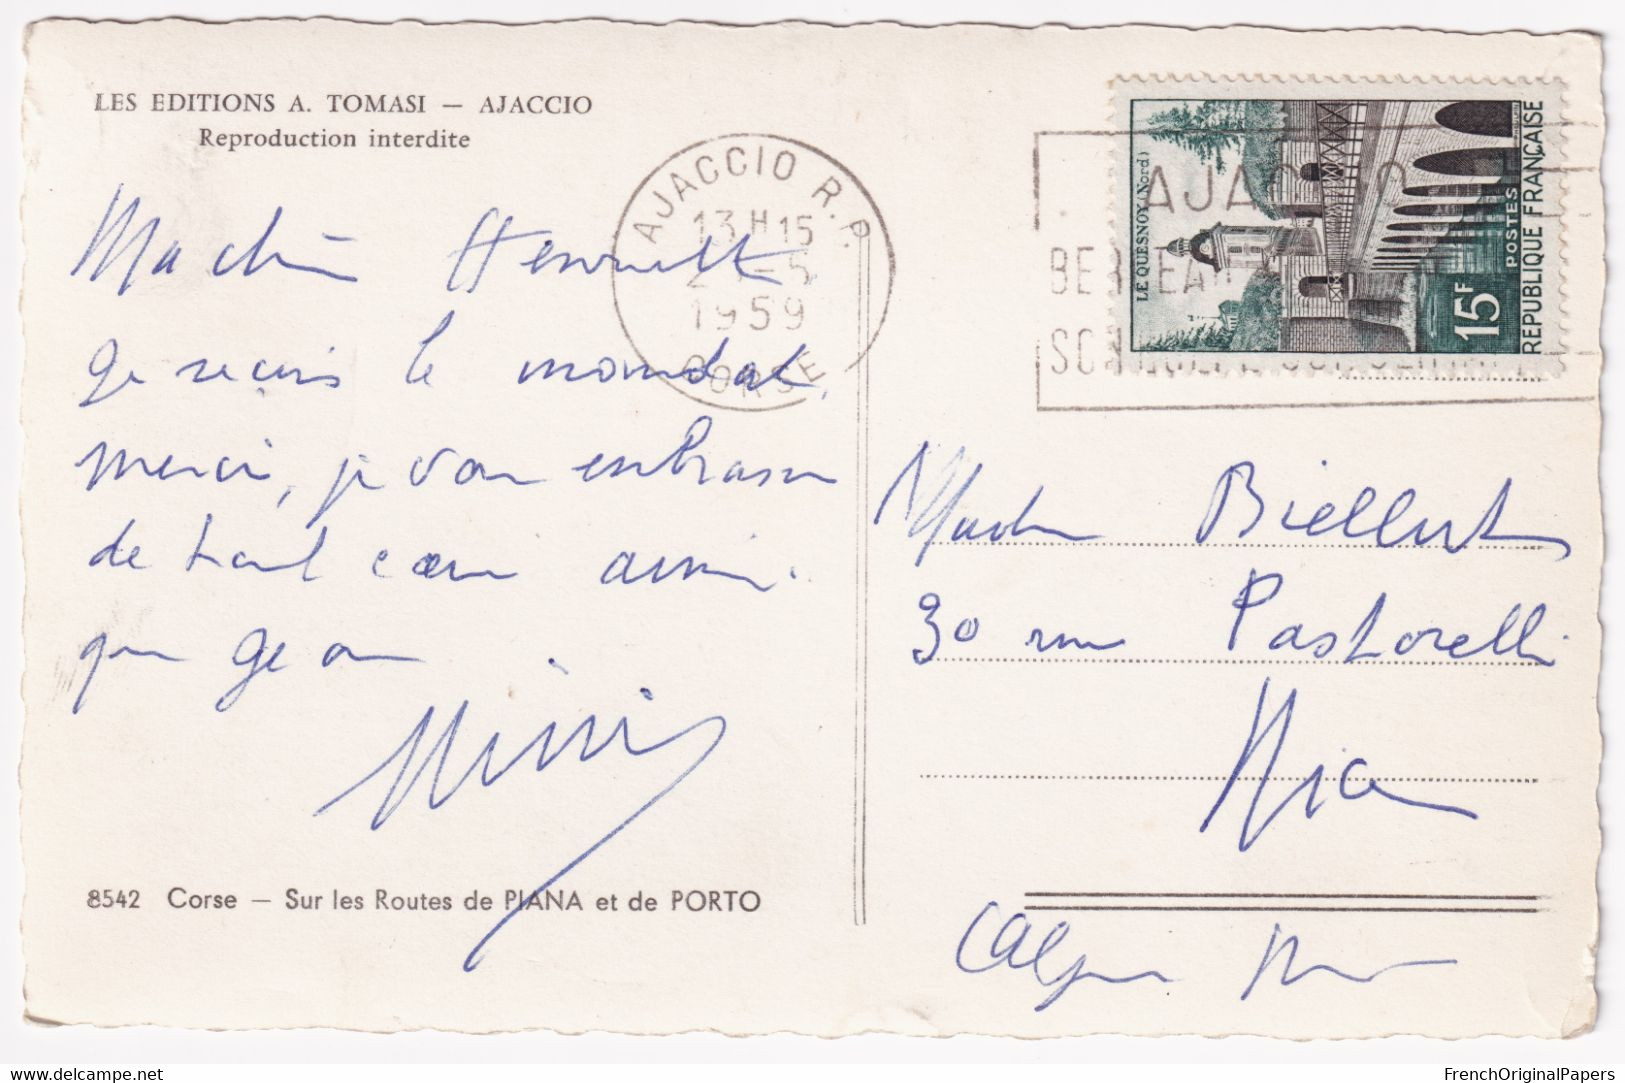 LES EDITIONS A. TOMASI — AJACCIO
Reproduction interdite
AJACCIO R.P.
13H15
-5
1959
CORSE
AJACCIO
SC
LE QUESNOY (Nord)
15F
POSTES
REPUBLIQUE FRANÇAISE
Ma chère Henriette
Je reçois le mandat,
merci, je vous embrasse
de tout cœur ainsi
que Jean
Mimi
Madame Biellert
30 rue Pastorelli
Nice
8542 Corse — Sur les Routes de PIANA et de PORTO
delcampe.net
FrenchOriginalPapers